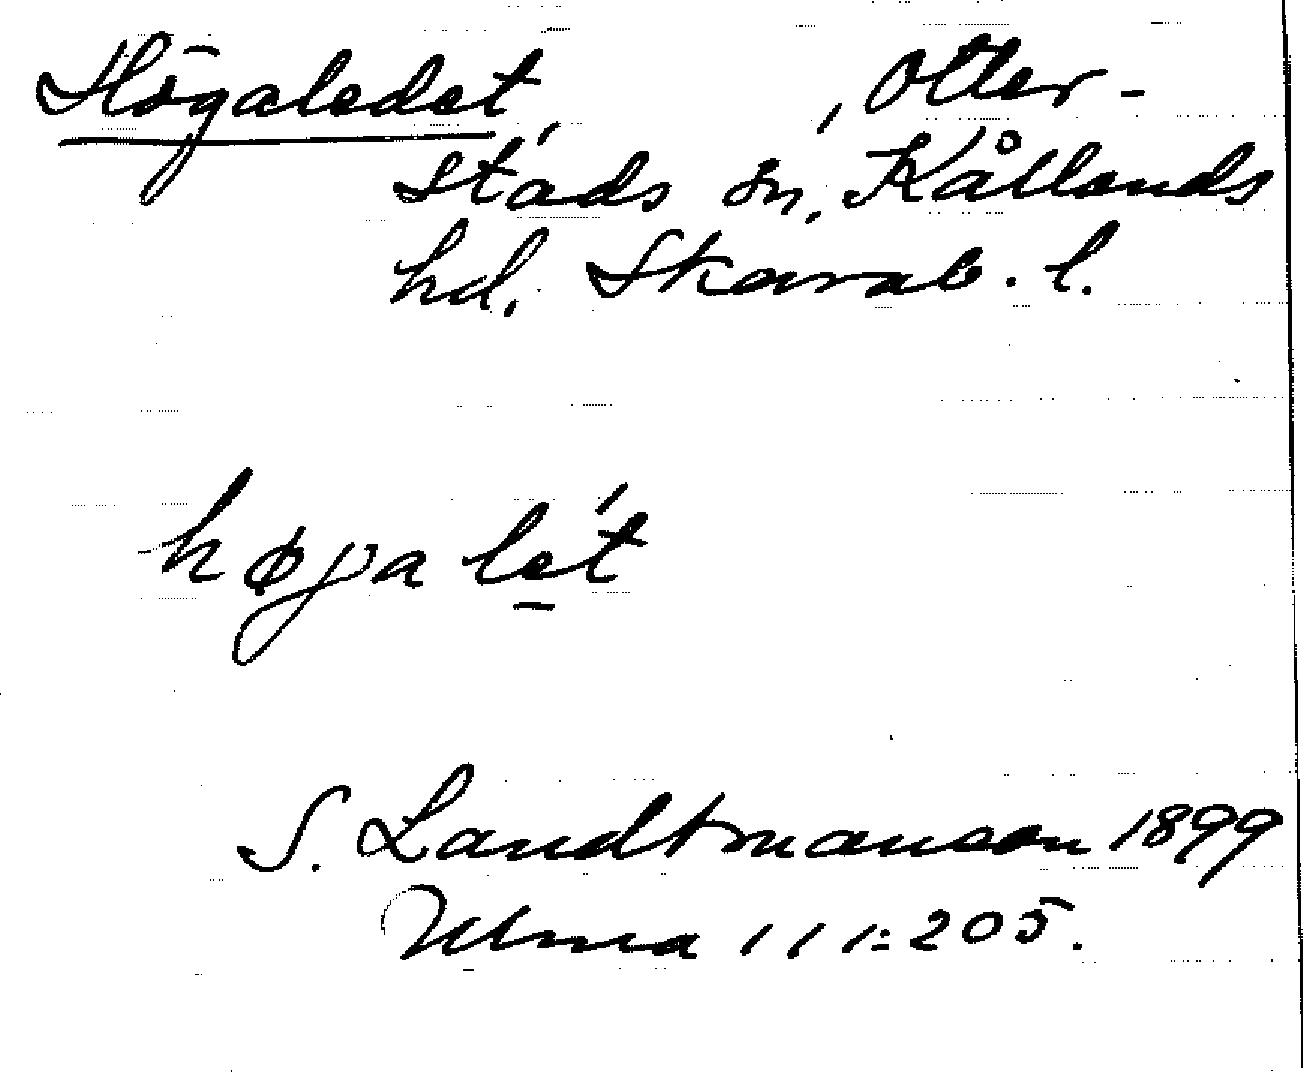 Högaledet, Otter-
stads sn, Kållands
hd. Skarab. l.
høga lét
S. Landtmanson 1899
Ulma 111:205.